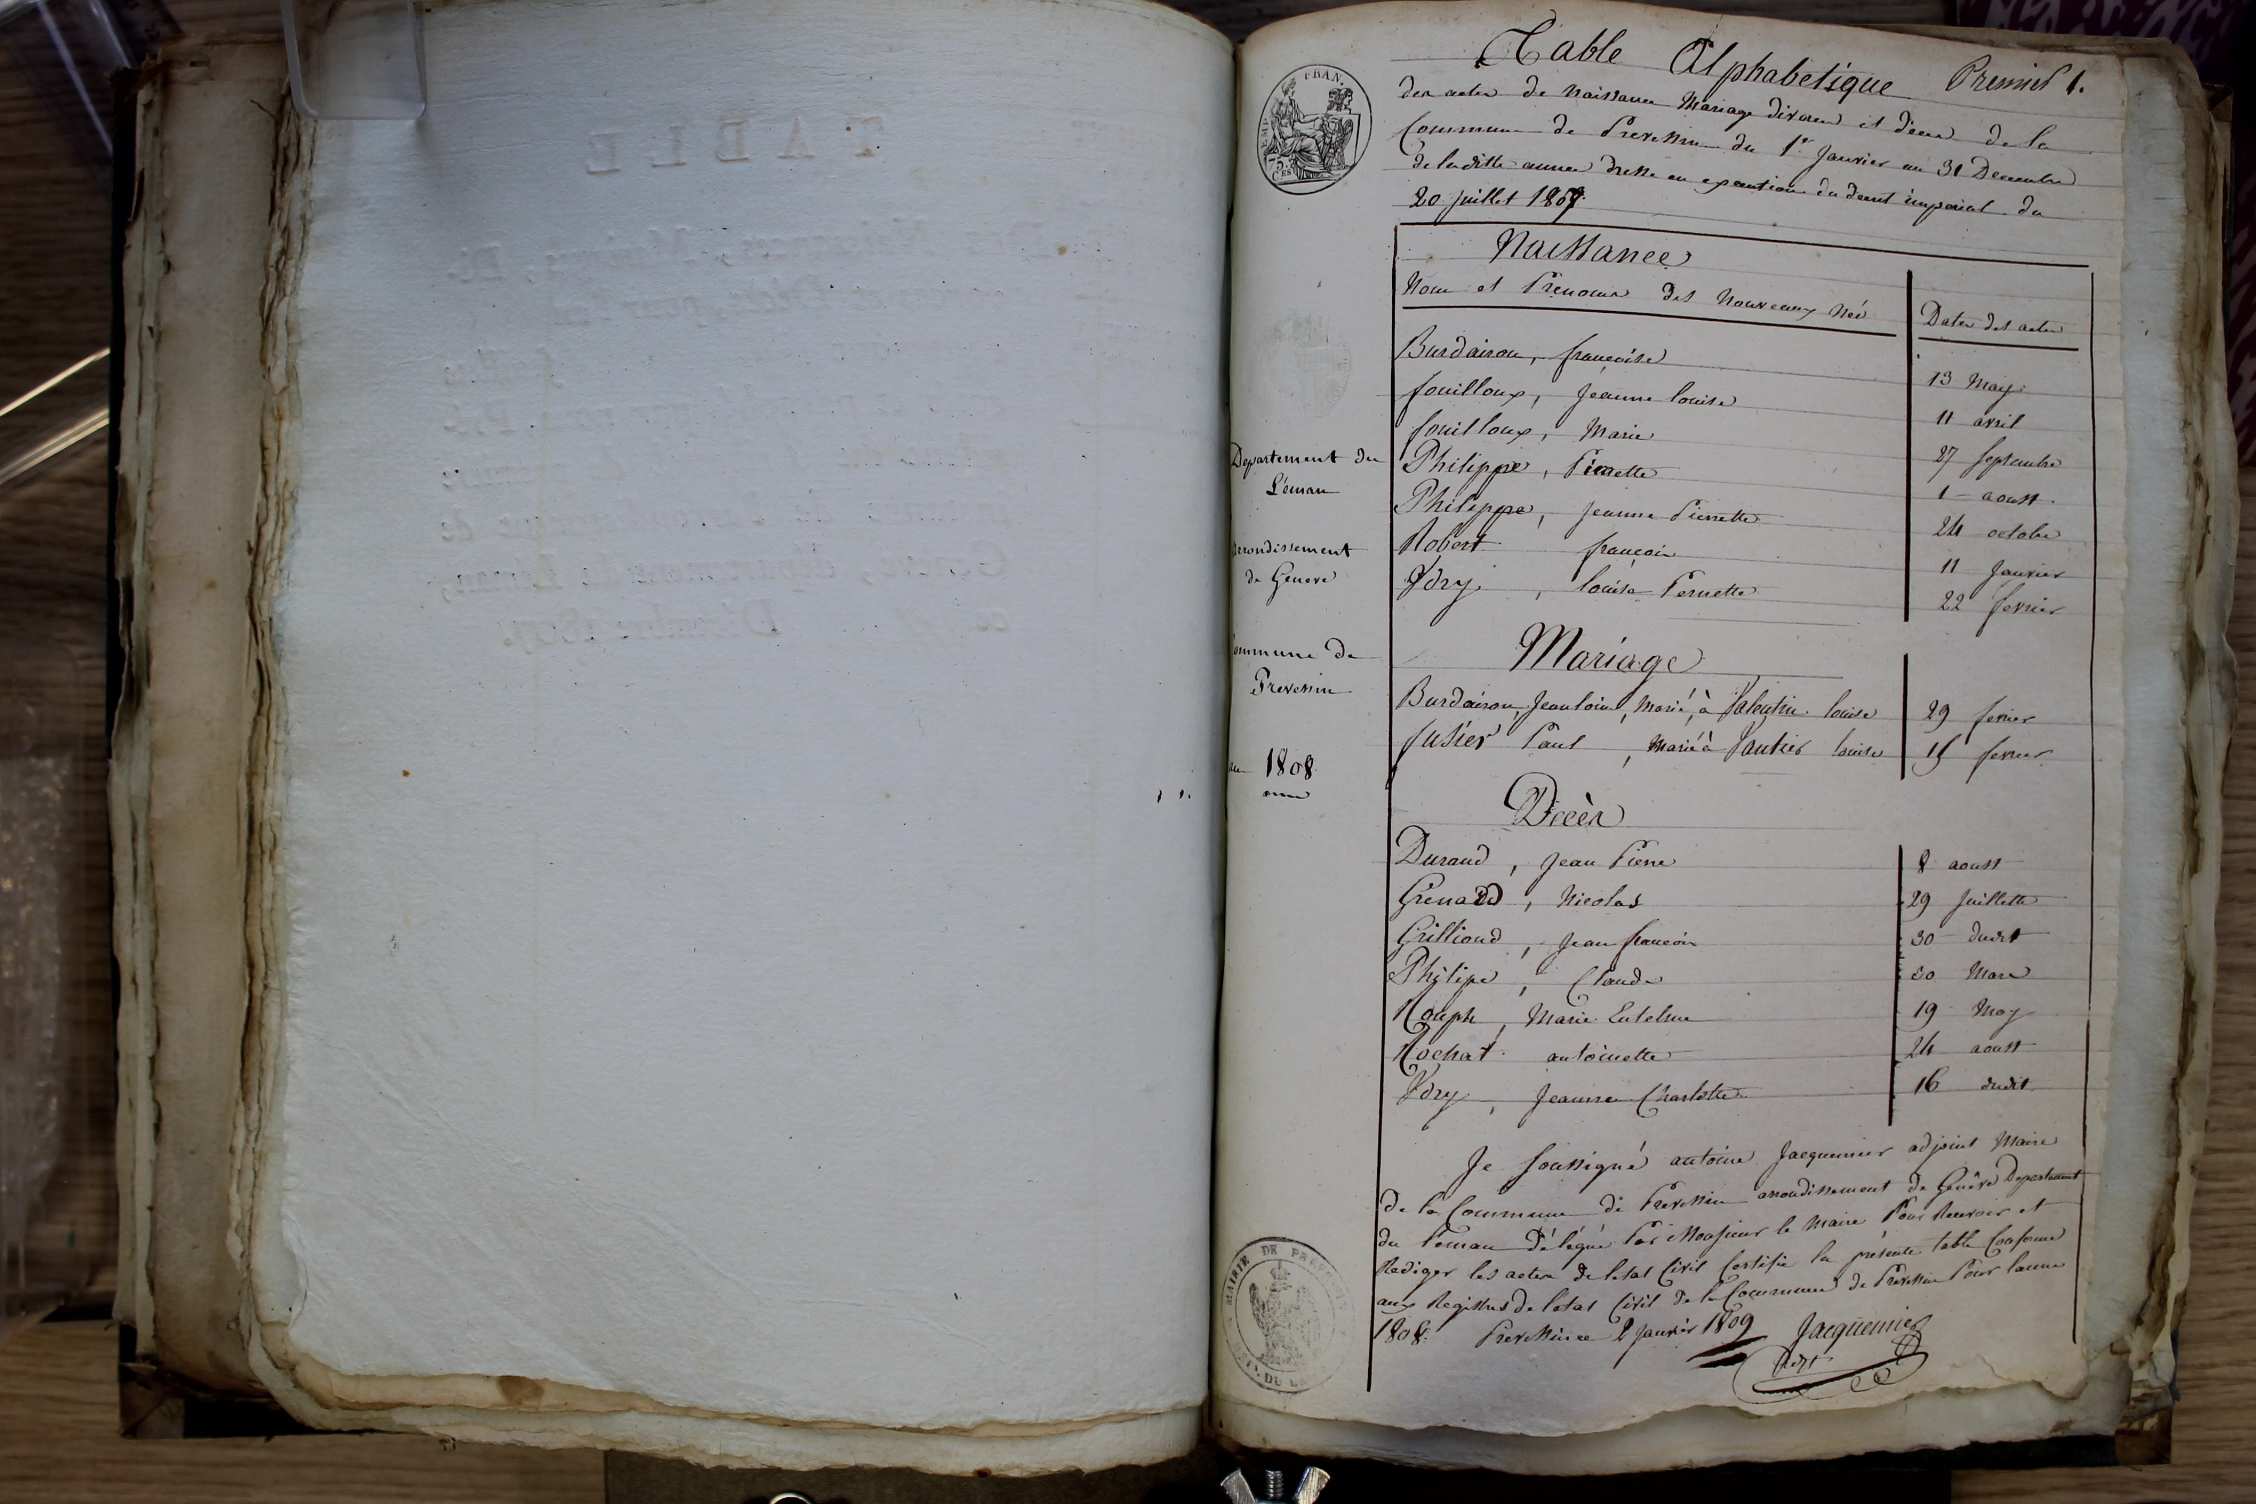 TABLE
Table Alphabetique Premier 1.
des actes de Naissance Mariage divorce et déces de la
Commune de Prevessin du 1er Janvier au 31 Decembre
de laditte annee dresse en execution du decret imperial du
20 juillet 1807.
FRAN.
EMP.
75
CES
Departement du
Léman
arrondissement
de Geneve
Commune de
Prevessin
an 1808
Naissance
Nom et Prenoms des Nouveaux Nés
Dates des actes
Burdairon, françoise 13 May
fouilloux, Jeanne louise 11 avril
fouilloux, Marie 27 septembre
Philippe, Pierrette 1 aoust
Philippe, Jeanne Pierrette 24 octobre
Robert françois 11 Janvier
Vdry, louise Pernette 22 fevrier
Mariage
Burdairon, Jean louis, Marié à Valentin louise 29 fevrier
fusier Paul, Marié à Vautier louise 15 fevrier
Décès
Durand, Jean Pierre 8 aoust
Grenard, Nicolas 29 Juillette
Grilliond, Jean françois 30 dudit
Philipe, Claude 30 Mars
Rouph, Marie 19 May
Rochat antoinette 24 aoust
Vdry, Jeanne Charlotte 16 dudit
Je soussigné antoine Jacquemier adjoint Maire
de la Commune de Prevessin arrondissement de Genêve Departement
du Léman Délégué Par Monsieur le Maire Pour Recevoir et
Rediger les actes de letat Civil Certifie la présente table Conforme
aux Registres de letat Civil de la Commune de Prevessin Pour lanne
1808. Prevessin ce 2 Janvier 1809 Jacquemier
Adjt
MAIRIE DE PREVESSIN
DU